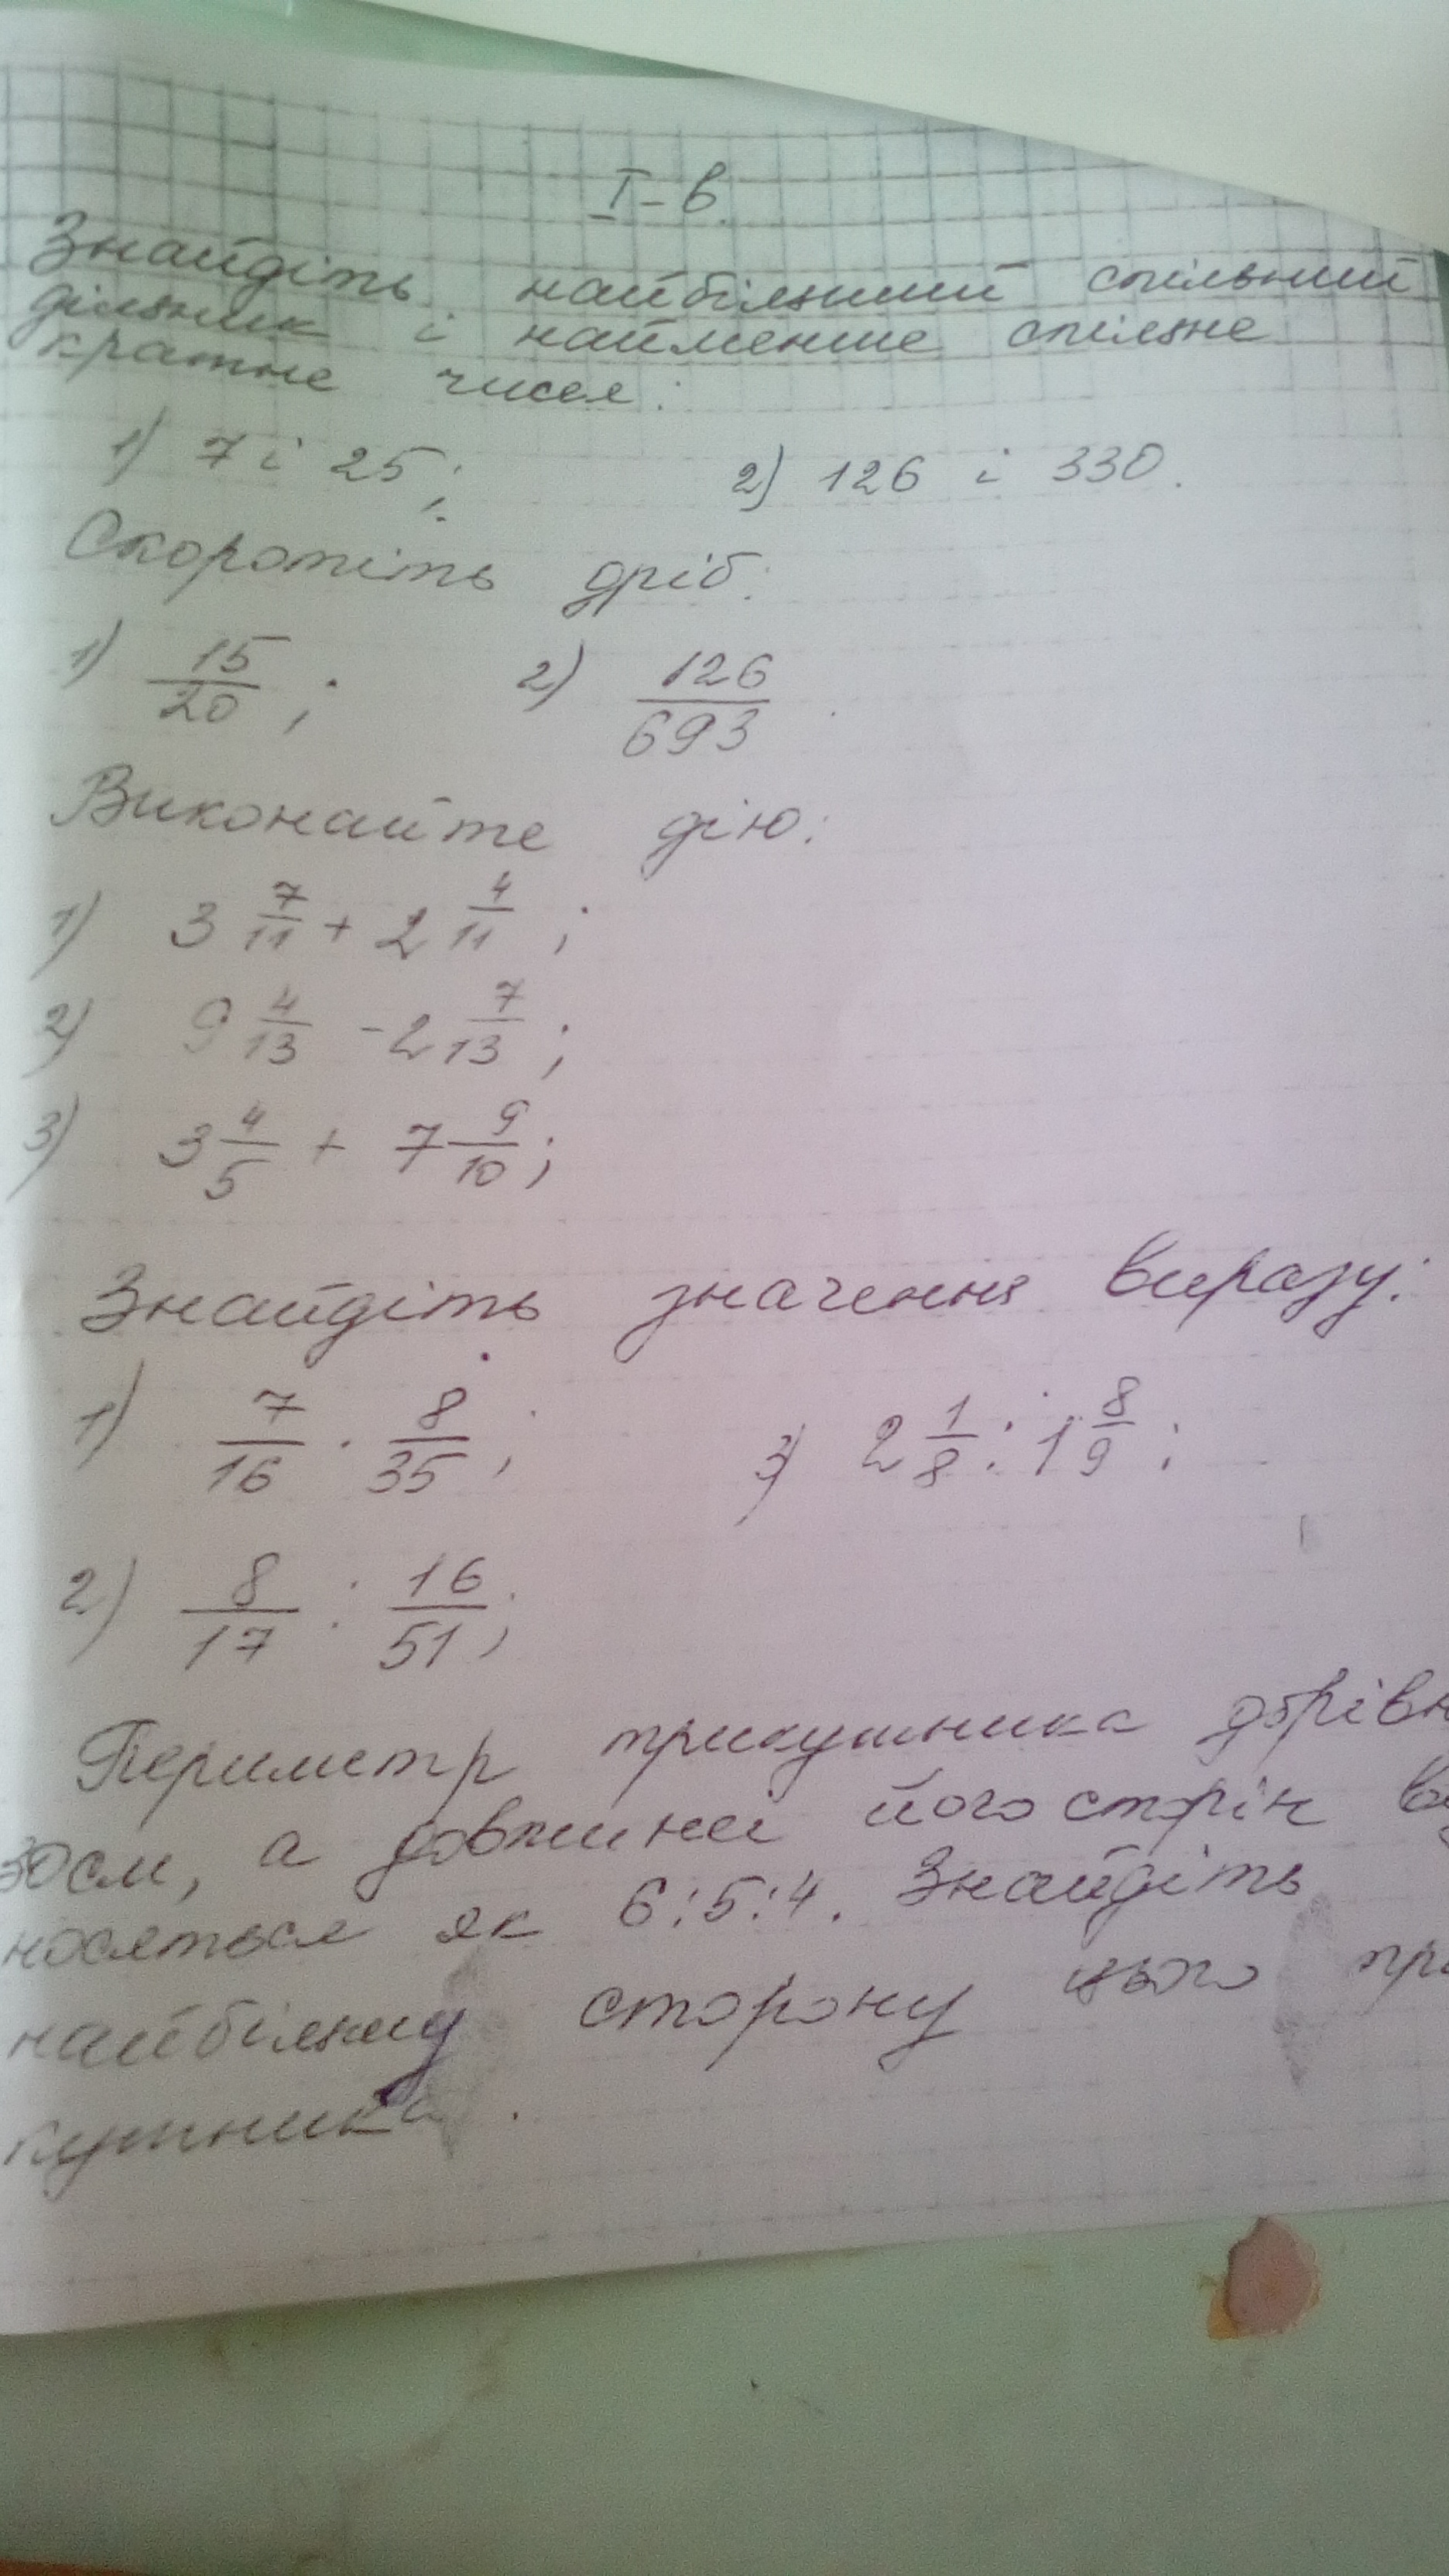 I-в.
Знайдіть найбільший спільний
дільник і найменше спільне
кратне чисел:
1) 7 і 25; 2) 126 і 330.
Скоротіть дріб:
1) 15/20; 2) 126/693.
Виконайте дію:
1) 3 7/11 + 2 4/11;
2) 9 4/13 - 2 7/13;
3) 3 4/5 + 7 9/10;
Знайдіть значення виразу:
1) 7/16 · 8/35; 3) 2 1/8 : 1 8/9;
2) 8/17 : 16/51;
Периметр трикутника дорівн
30см, а довжини його сторін ві
носяться як 6:5:4. Знайдіть
найбільшу сторону цього три
кутника.